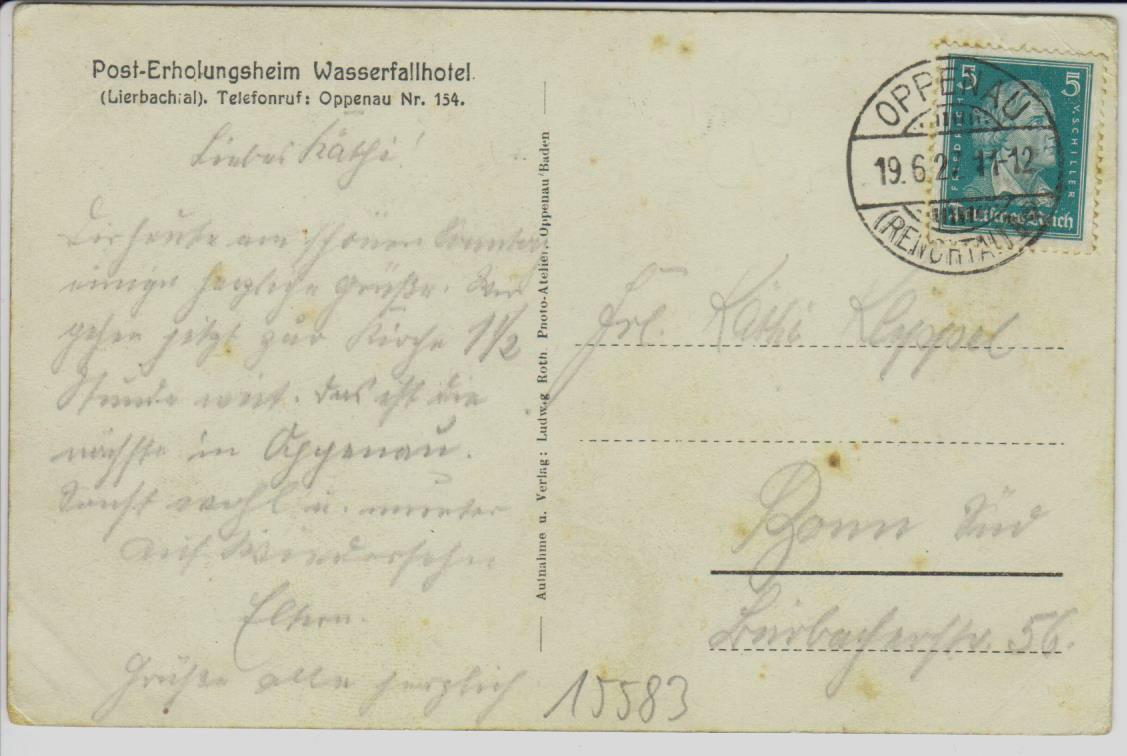 Post-Erholungsheim Wasserfallhotel.
(Lierbachtal). Telefonruf: Oppenau Nr. 154.
Liebes Käthi!
Dir heute am schönen Sonntag
einige herzliche Grüße. Wir
gehen jetzt zur Kirche 1 1/2
Stunde weit. Das ist die
nächste in Oppenau.
Sonst wohl u. munter
Auf Wiedersehn
Eltern.
Grüße alle herzlich
Aufnahme u. Verlag: Ludwig Roth, Photo-Atelier, Oppenau/Baden
OPPENAU
19.6.27 11-12
(RENCHTAL)
5 5
FRIEDRICH V. SCHILLER
Deutsches Reich
Frl. Käthi Kleppel
Bonn Süd
Burbacherstr. 56.
15583